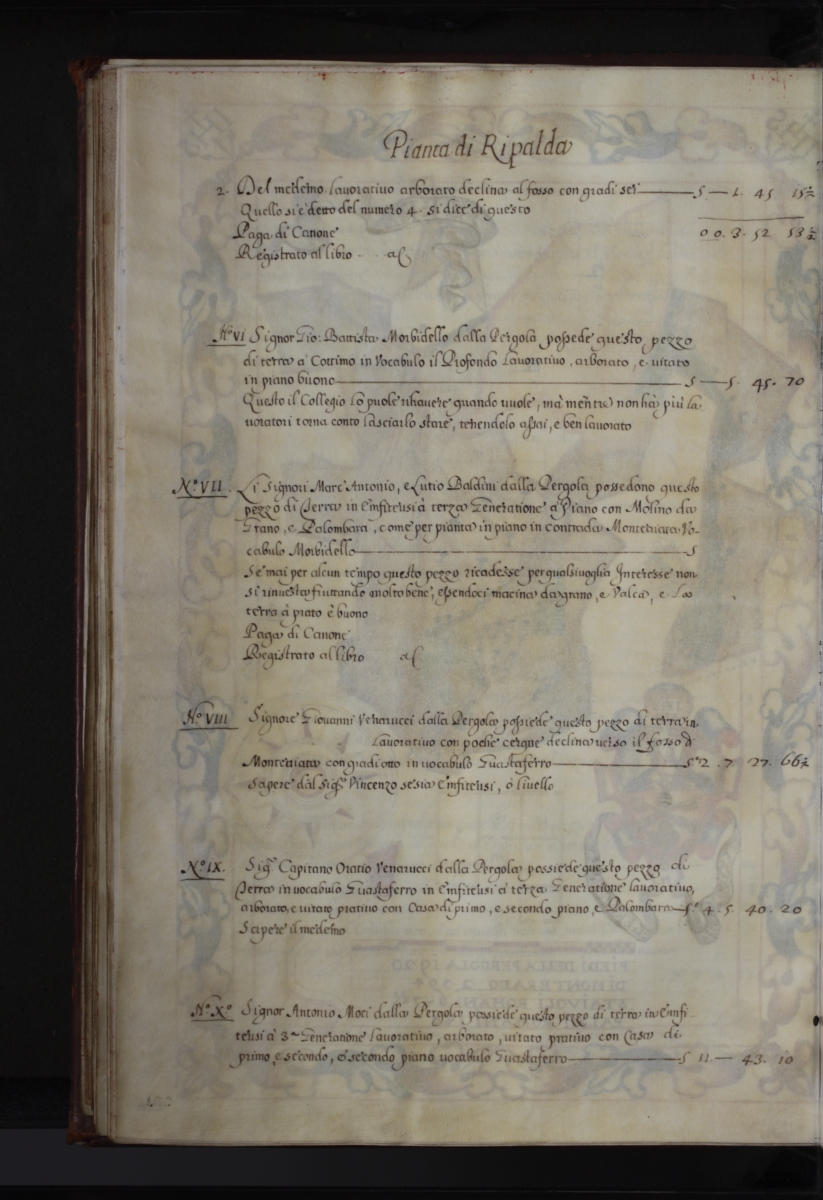 Pianta di Ripalda
2. Del medemo lavorativo arborato declina al fosso con gradi sei S — 1. 45 15½
Quello si è detto del numero 4 si dice di questo
Paga di Canone 00.3.52 53½
Registrato al libro ac
N.º VI Signor Gio: Battista Morbidello dalla Pergola possede questo pezzo
di terra à Cottimo in Vocabulo il Profondo Lavorativo, arborato, e vitato
in piano buono S — 5. 45. 70
Questo il Collegio lo puole rihavere quando vuole, mà mentre non hà più la
voratori torna conto lasciarlo stare, tenendolo assai, e ben lavorato
N.º VII. Li Signori Marc'Antonio, e Lutio Baldini dalla Pergola possedono questo
pezzo di Terra in Emfiteusi à terza Generatione à Piano con Molino da
Grano, e Palombara, come per pianta in piano in contrada Monterata Vo-
cabulo Morbidello S
Se mai per alcun tempo questo pezzo ricadesse per qualsivoglia Interesse non
si rinvesta fruttando molto bene, essendoci macina da grano, e Valca, e La
terra à prato è buono
Paga di Canone
Registrato al libro ac
N.º VIII Signore Giovanni Venarucci dalla Pergola possiede questo pezzo di terra in
Lavorativo con poche cerque declina verso il fosso d
Monterata con gradi otto in vocabulo Guastaferro S 2. 7. 27. 66½
Sapere dal Sig.r Vincenzo se sia Emfiteusi, ò livello
N.º IX. Sig.r Capitano Oratio Venarucci dalla Pergola possiede questo pezzo di
Terra in vocabulo Guastaferro in Emfiteusi à terza Generatione lavorativo,
arborato, e vitato prativo con Casa di primo, e secondo piano, e Palombara S 4. 5. 40. 20
Sapere il medemo
N.º X.º Signor Antonio Moci dalla Pergola possiede questo pezzo di terra in Emfi
teusi à 3.a Generatione lavorativo, arborato, vitato prativo con Casa di
primo, e secondo, è secondo piano vocabulo Guastaferro S 11 — 43. 10